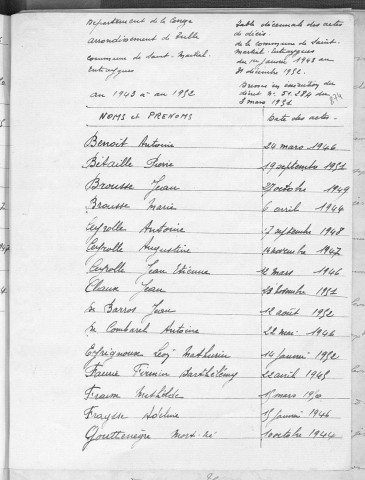 Département de la Corrèze
arrondissement de Tulle
Commune de Saint-Martial-
Entraygues
an 1943 à an 1952
Table décennale des actes
de décès
de la commune de Saint-
Martial-Entraygues
du 1er janvier 1943 au
31 décembre 1952.
Dressée en exécution du
décret N° 51.284 du
3 mars 1951
NOMS et PRENOMS Date des actes.
Benoit Antoine 24 mars 1946
Bétaille Pierre 19 septembre 1951
Brousse Jean 27 octobre 1949
Brousse Marie 6 avril 1944
Ceyrolle Antoine 17 septembre 1948
Ceyrolle Augustine 14 novembre 1947
Ceyrolle Jean Etienne 12 mars 1946
Claux Jean novembre 1951
de Barros Jean 12 août 1952
de Combarel Antoine 22 mai 1946
Eyrignoux Léon Mathurin 14 janvier 1952
Faurie Firmin Barthélémy 22 avril 1945
Mathilde mars
Fraysse Adeline 15 janvier 1946
Gouttenègre Mort-né 10 octobre 1944